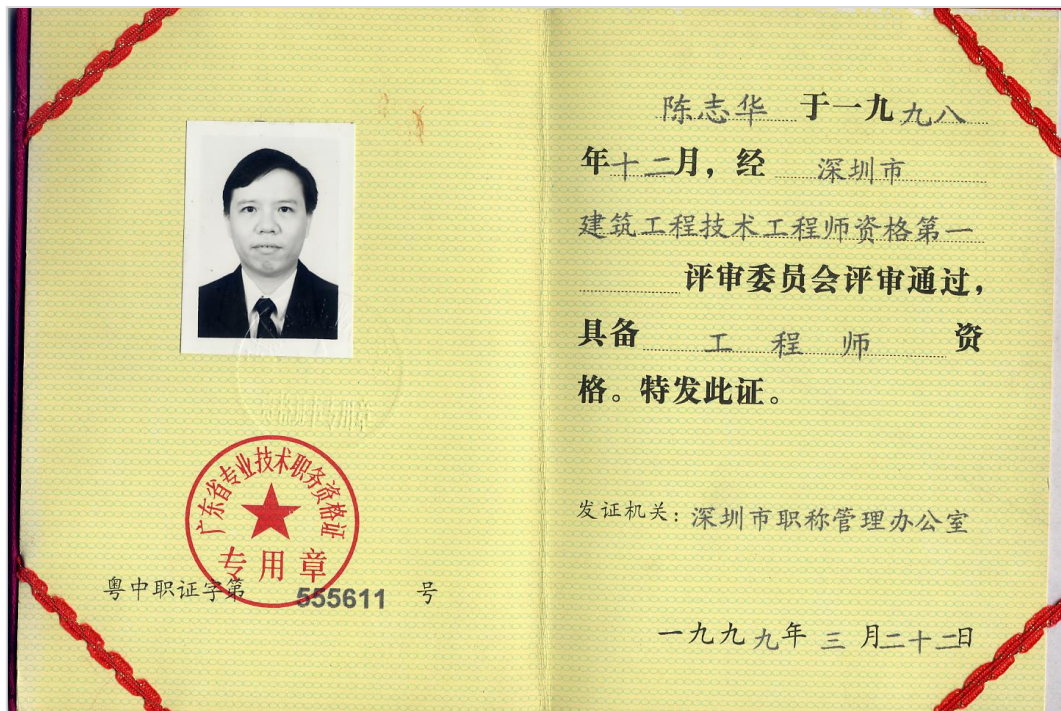 广东省专业技术职务资格证
专用章
粤中职证字第 555611 号
陈志华 于一九九八
年十二月，经 深圳市
建筑工程技术工程师资格第一
评审委员会评审通过，
具备 工程师 资
格。特发此证。
发证机关：深圳市职称管理办公室
一九九九年三月二十二日